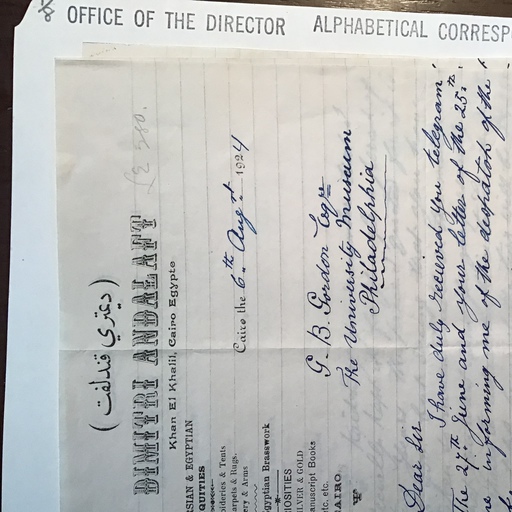 ( ديمتري قندلفت )
DIMITRI ANDALAFT
£E 280.
Khan El Khalil, Cairo Egypte
RSIAN & EGYPTIAN
QUITIES
oideries & Tents
arpets & Rugs.
ery & Arms
Egyptian Brasswork
RIOSITIES
ILVER & GOLD
anuscript Books
etc. etc.
CAIRO
Cairo the 6th Augst 1924
G. B. Gordon Esqre
The University Museum
Philadelphia
Dear Sir
I have duly recieved you telegram
The 27th June and your letter of the 25th
ne informing me of the despatch of the
OFFICE OF THE DIRECTOR ALPHABETICAL CORRESP